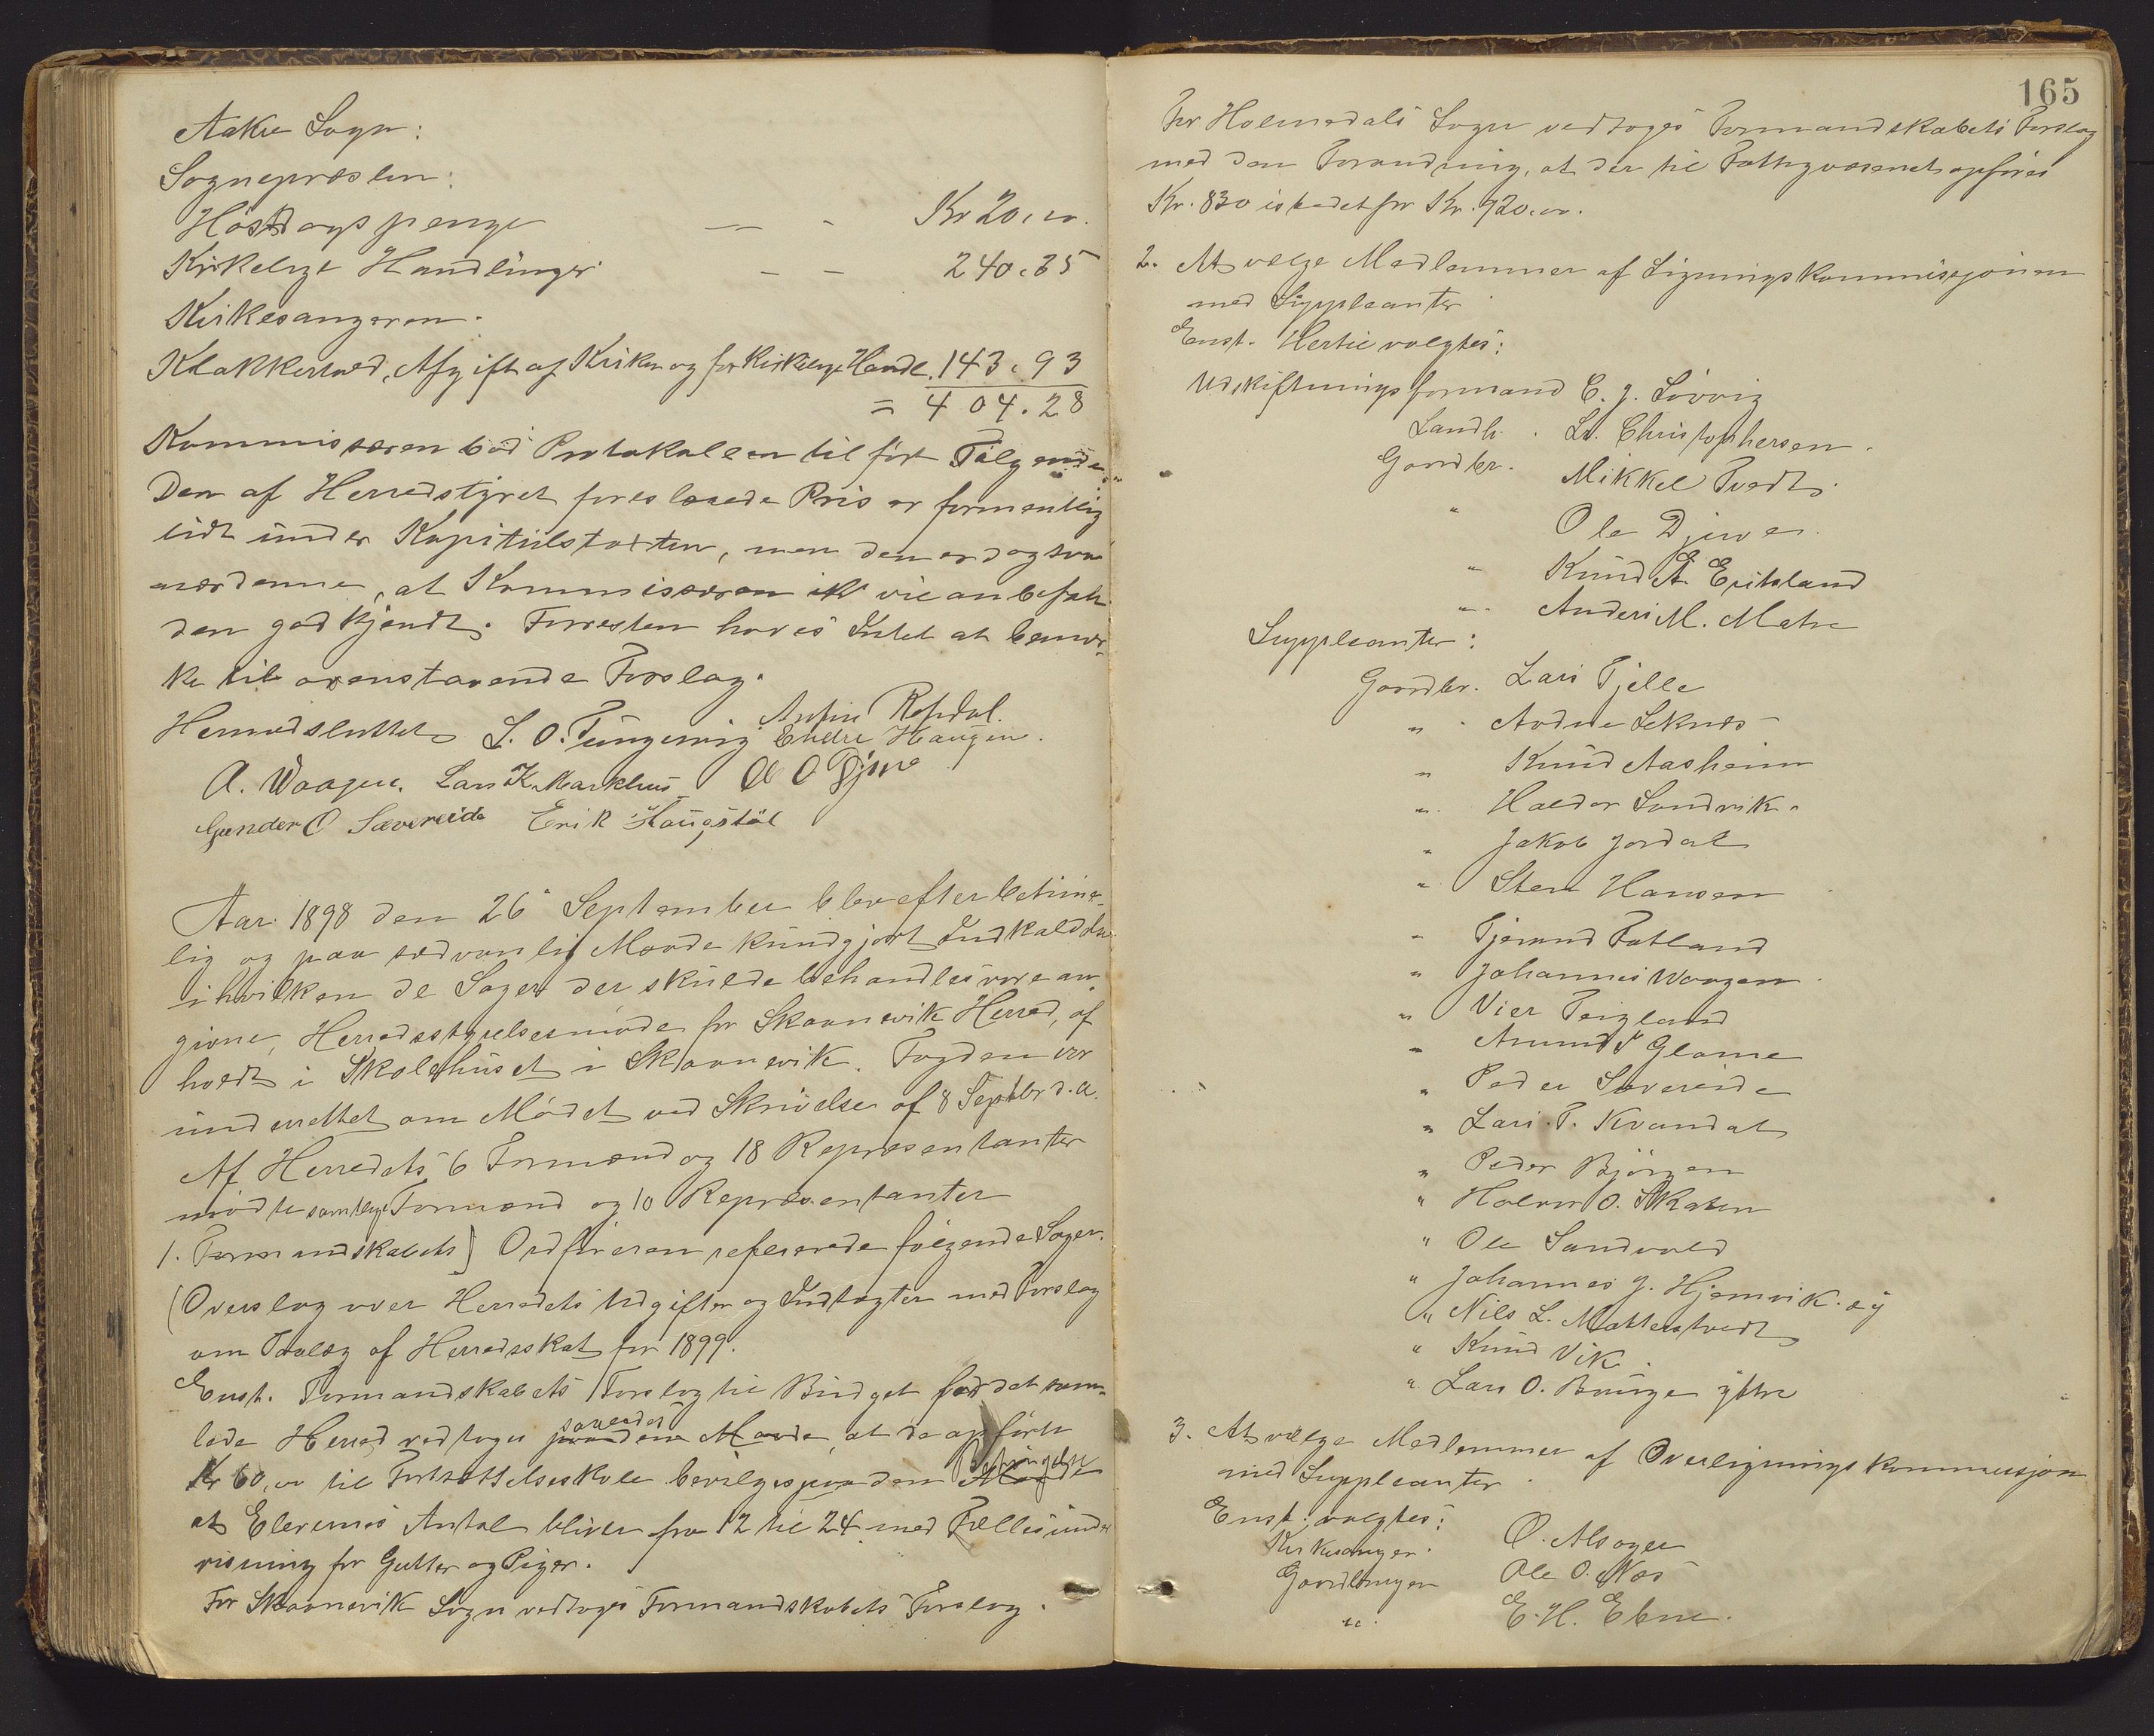 Aakre Sogn:
Sognepræsten:
Høstdagspenge — - Kr 20.00.
Kirkelige Handlinger — - 240.35
Kirkesangeren.
Klokkertold, Afgift af Kirken og for Kirkelige Handl. 143.93
= 404.28
Kommissæren bød Protokollen tilført Følgende:
Den af Herredstyret foreslaaede Pris er formentlig
lidt under Kapitelstaxten, men den er dog saa
nær denne, at Kommissæren vil anbefale
den godkjendt. Forresten haves Intet at bemær-
ke til ovenstaaende Forslag.
Hermed sluttet. L. O. Tungesvig Anfin Refsdal.
Endre Haugen.
A. Waagen. Lars K. Markhus Ol O Djuve
Gunder O Sævereide Erik Haugstøl
Aar 1898 den 26 September blev efter betime-
lig og paa sædvanlig Maade kundgjort Indkaldelse
i hvilken de Sager der skulde behandles vare an-
givne, Herredsstyrelsesmøde for Skaanevik Herred, af
holdt i Skolehuset i Skaanevik. Fogden var
underrettet om Mødet ved Skrivelse af 8 Septbr d. A.
Af Herredets 6 Formænd og 18 Repræsentanter
mødte samtlige Formænd og 10 Repræsentanter
1. Formandskabets] Ordføreren refererede følgende Sager.
(Overslag over Herredets Udgifter og Indtægter med Forslag
om Paalæg af Herredsskat for 1899.
Enst. Formandskabets Forslag til Budget for det sam-
lede Herred vedtoges saaledes paa den Maade, at de opførte
Kr 60,00 til Fortsættelsesskole bevilges paa den Betingelse
at Elevernes Antal bliver fra 12 til 24 med Fællesunder
visning for Gutter og Piger.
For Skaanevik Sogn vedtoges Formandskabets Forslag.
165
For Holmedals Sogn vedtoges Formandskabets Forslag
med den Forandring, at der til Fattigvæsenet opføres
Kr. 830 istedetfor Kr. 920.00.
2. At vælge Medlemmer af Ligningskommissjonen
med Suppleanter
Enst. Hertil valgtes:
Udskiftningsformand C. J. Løvvig
Landh. . L. Christophersen.
Gaardbr. Mikkel Tvedt.
" Ole Djuve.
" Knud A. Eritsland
" Anders M. Matre
Suppleanter:
Gaardbr. Lars Fjelle
" Aadne Leknæs
" Knud Aasheim
" Haldor Sandvik.
" Jakob Jordal
" Sten Hansen
" Gjermund Fatland
" Johannes Waagen.
" Vier Teigland
" Amund Glame
" Peder Sævereide
" Lars T. Kvandal
" Peder Bjørgen
" Halvor O. Skaten
" Ole Sandvold
" Johannes J. Hjemvik. sy
" Nils L. Matterstvedt
" Knud Vik.
" Lars O. Bauge yttre
3. At vælge Medlemmer af Overligningskommissjon
med Suppleanter.
Enst. valgtes:
Kirkesanger. O. Alsager
Gaardbruger Ole O. Næs
" E. H. Ebne.